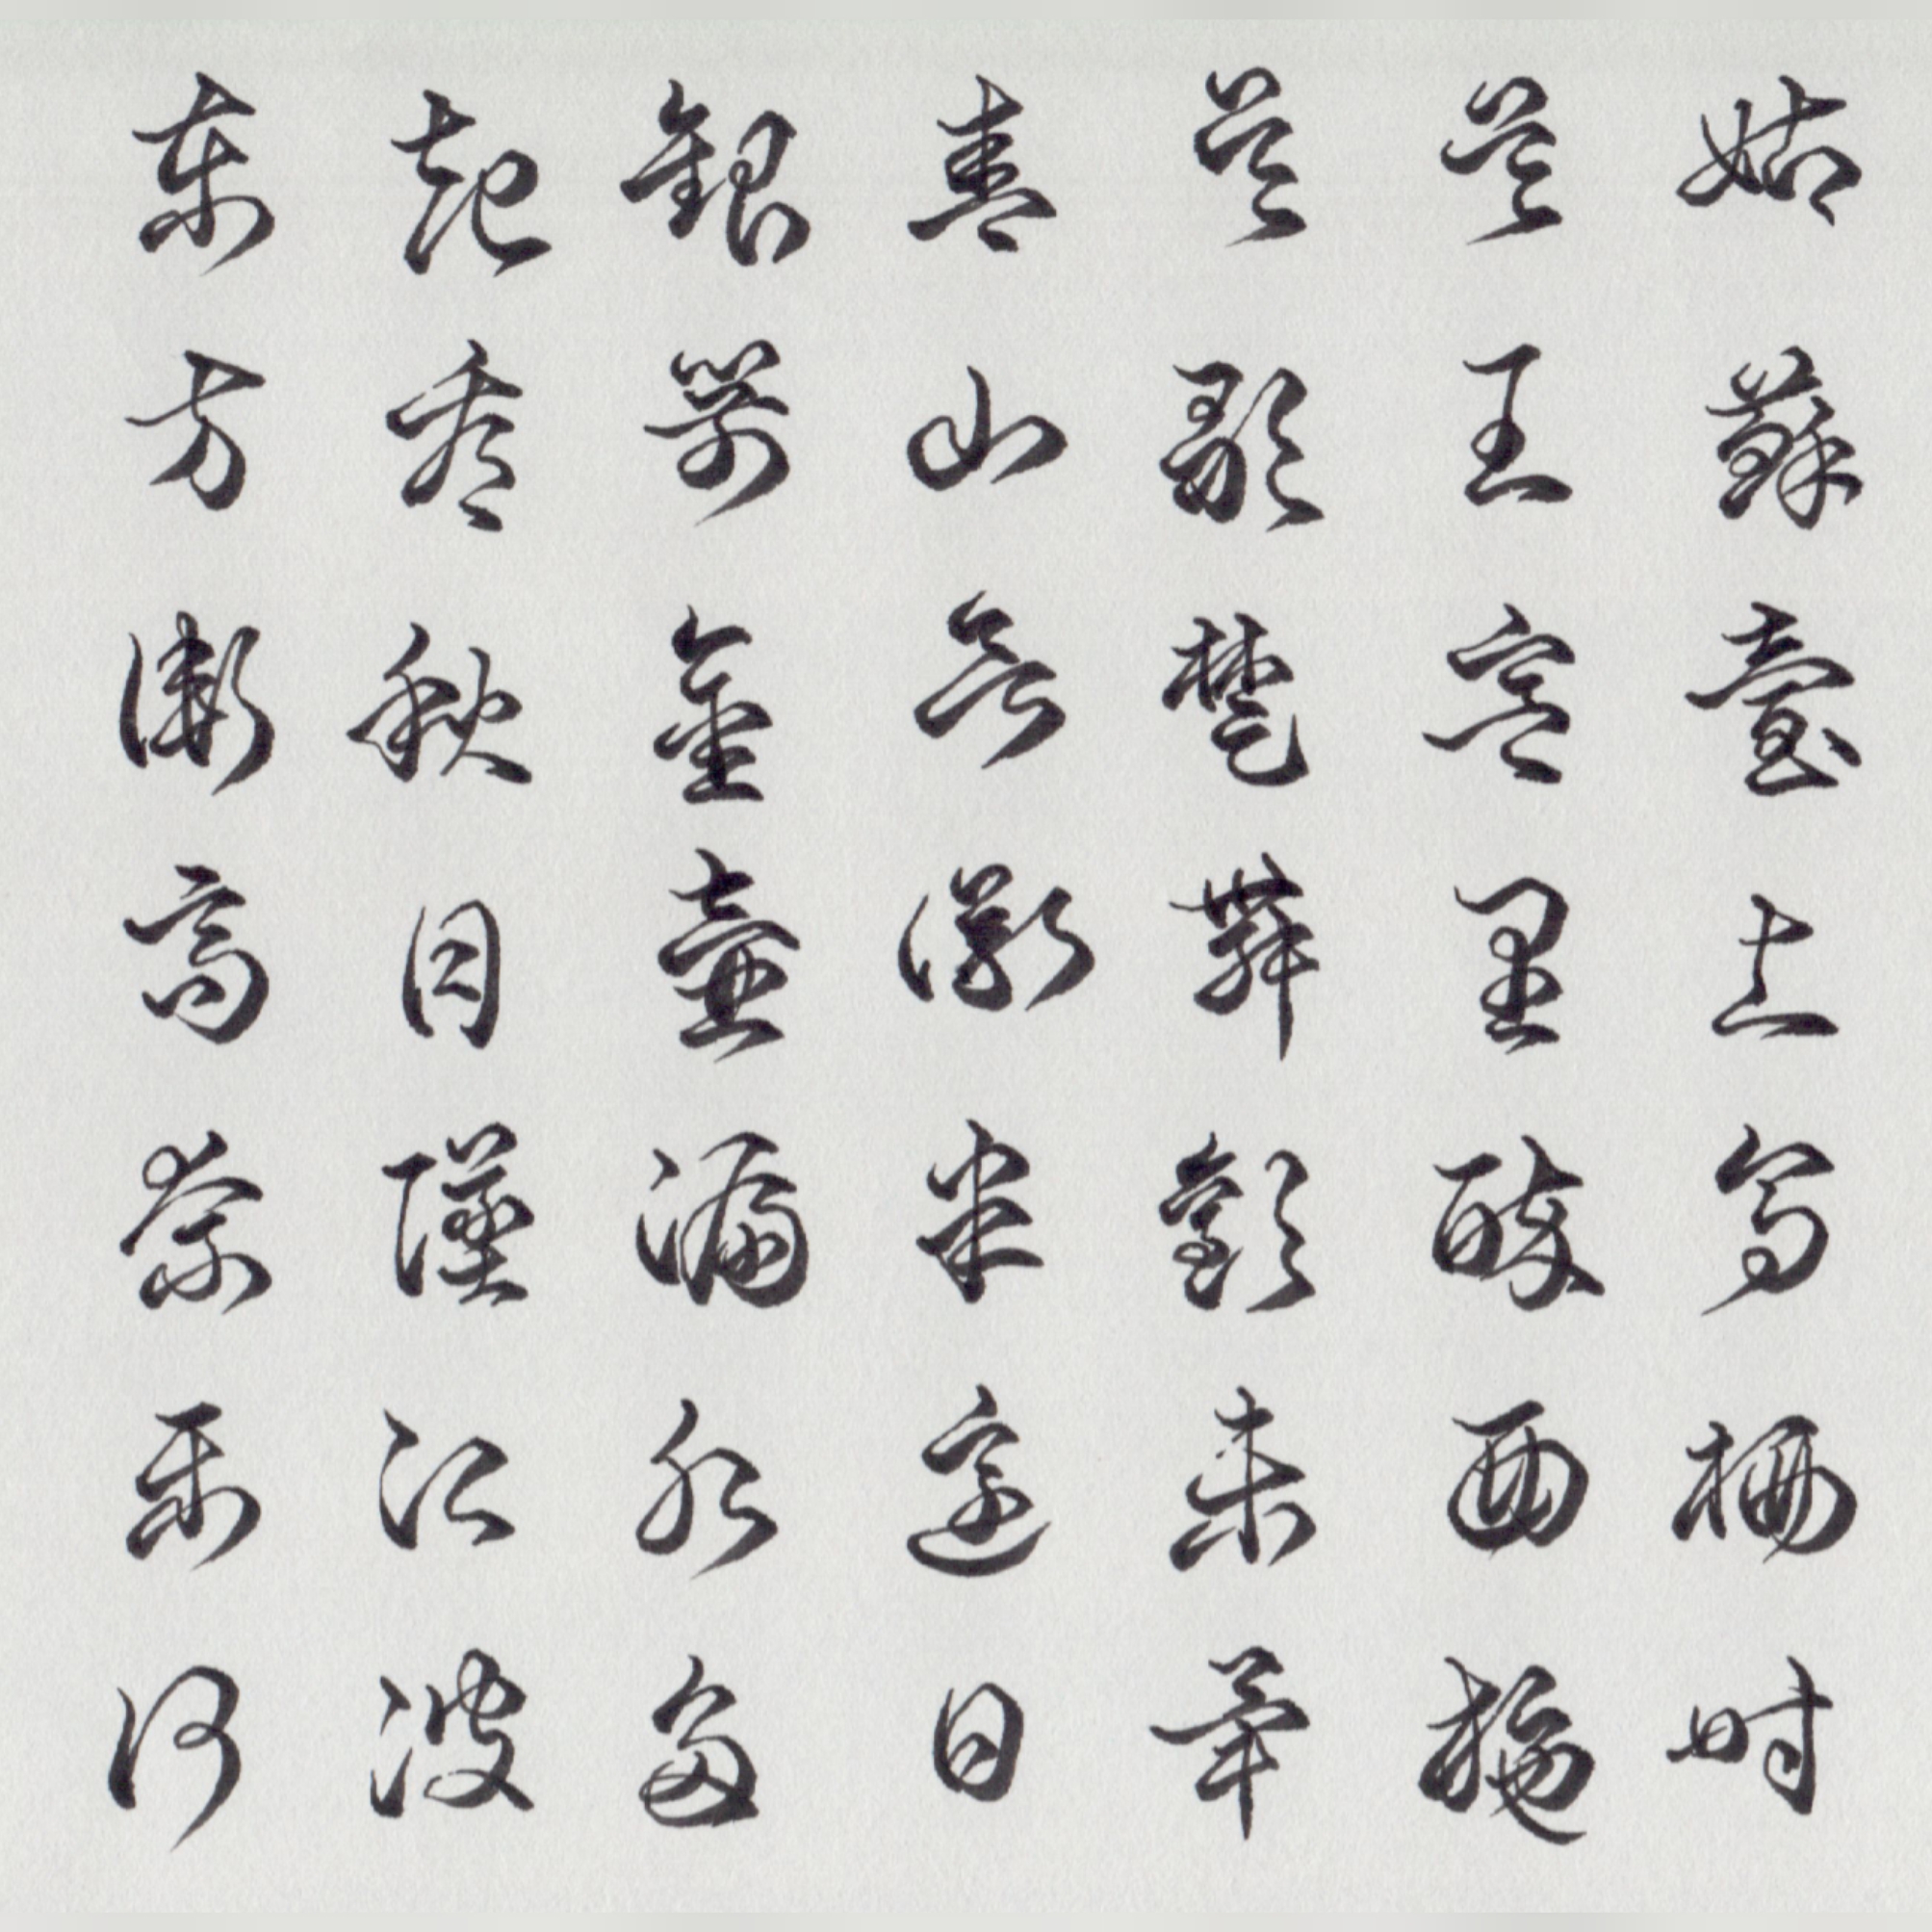 姑蘇臺上烏棲時
吳王宮里醉西施
吳歌楚舞歡未畢
青山欲銜半邊日
銀箭金壺漏水多
起看秋月墜江波
東方漸高奈樂何